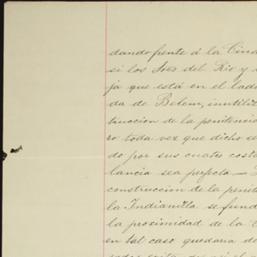 dando frente á la Ciud
si los Sres del Rio y
ja que está en el lado
da de Belem, inutiliz
truccion de la penitencia
ro toda vez que dicho se
do por sus cuatro costa
lancia sea perfecta —
construccion de la penit
la Indianilla se fund
la proximidad de la C
en tal caso quedaria de